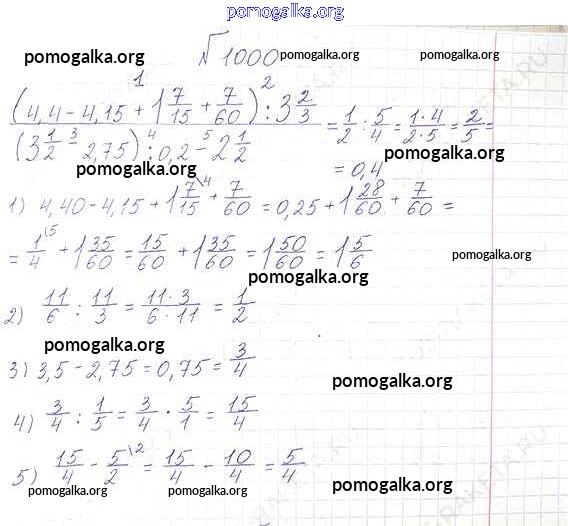 pomogalka.org
№1000
pomogalka.org pomogalka.org pomogalka.org
1 2
(4,4 - 4,15 + 1 7/15 + 7/60) : 3 2/3
3 4 5
(3 1/2 - 2,75) : 0,2 - 2 1/2
= 1/2 : 5/4 = 1·4/2·5 = 2/5 =
pomogalka.org
pomogalka.org
= 0,4
1) 4,40 - 4,15 + 1 7\4/15 + 7/60 = 0,25 + 1 28/60 + 7/60 =
= 1\15/4 + 1 35/60 = 15/60 + 1 35/60 = 1 50/60 = 1 5/6
pomogalka.org
pomogalka.org
2) 11/6 : 11/3 = 11·3/6·11 = 1/2
pomogalka.org
3) 3,5 - 2,75 = 0,75 = 3/4
pomogalka.org
4) 3/4 : 1/5 = 3/4 · 5/1 = 15/4
5) 15/4 - 5\2/2 = 15/4 - 10/4 = 5/4
pomogalka.org pomogalka.org pomogalka.org